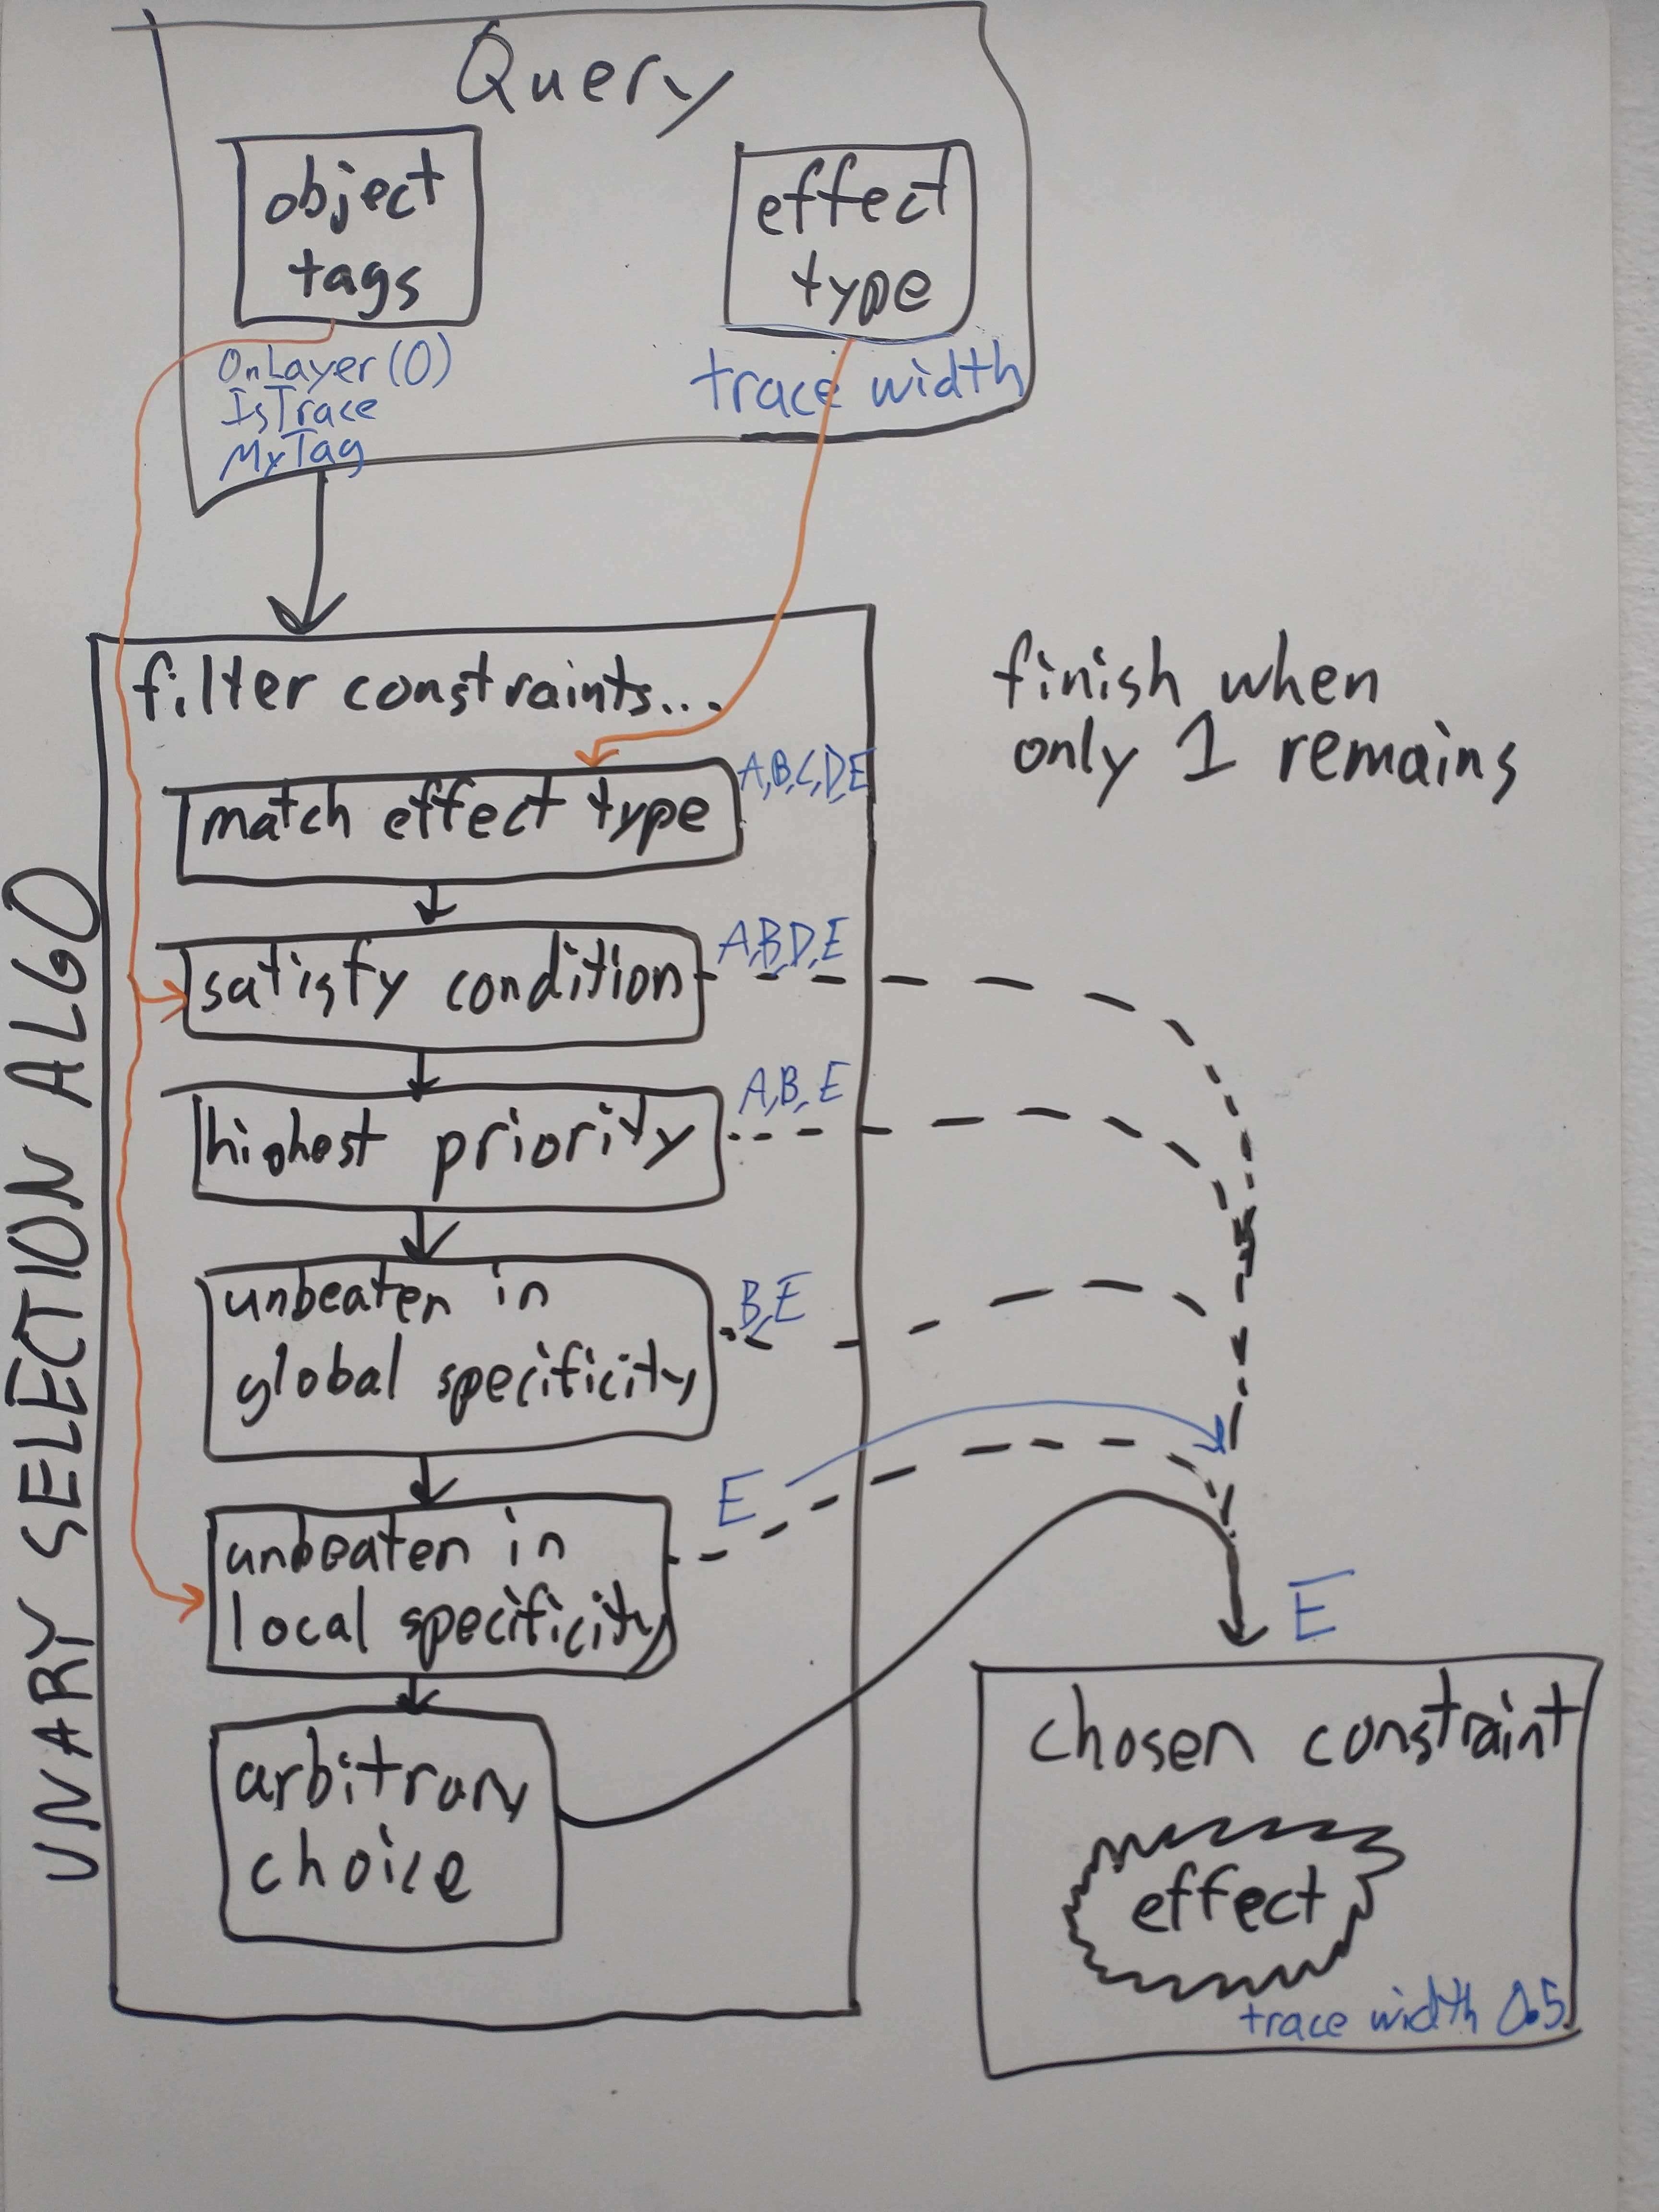 Query
object
tags
effect
type
OnLayer(0)
IsTrace
MyTag
trace width
filter constraints...
finish when
only 1 remains
match effect type
A,B,C,D,E
satisfy condition
A,B,D,E
highest priority
A,B,E
unbeaten in
global specificity
B,E
unbeaten in
local specificity
E
arbitrary
choice
UNARY SELECTION ALGO
E
chosen constraint
effect
trace width 0.5